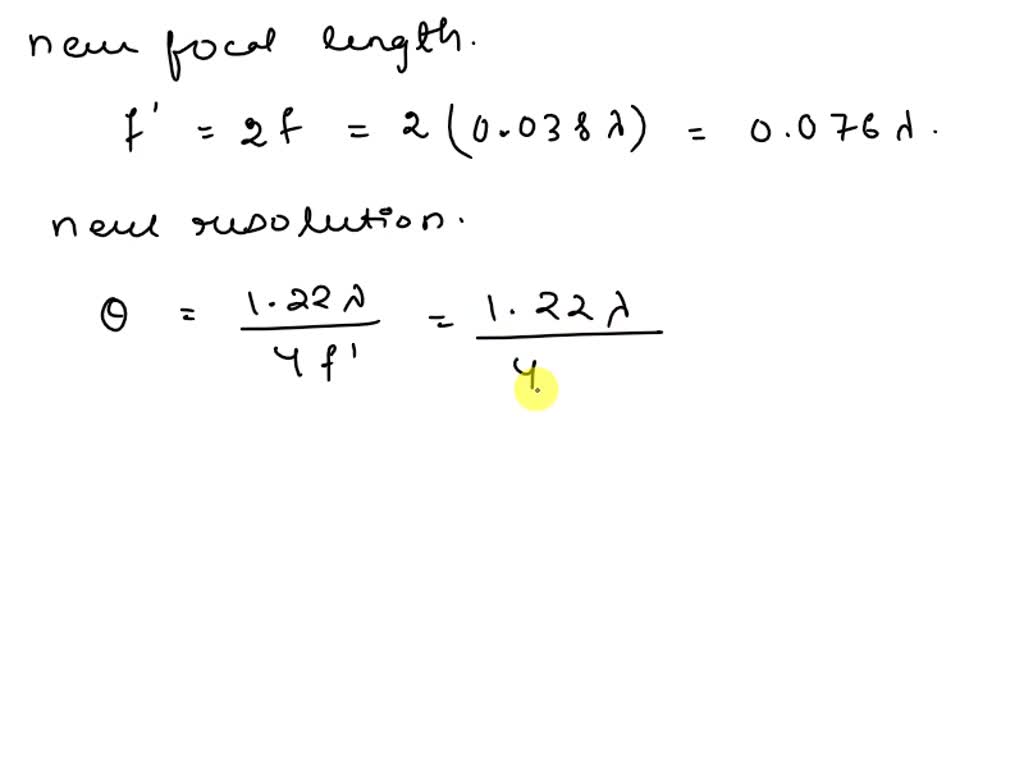 new focal length.
f' = 2f = 2 (0.038 λ) = 0.076 λ.
new resolution.
θ = 1.22 λ / 4 f' = 1.22 λ / 4